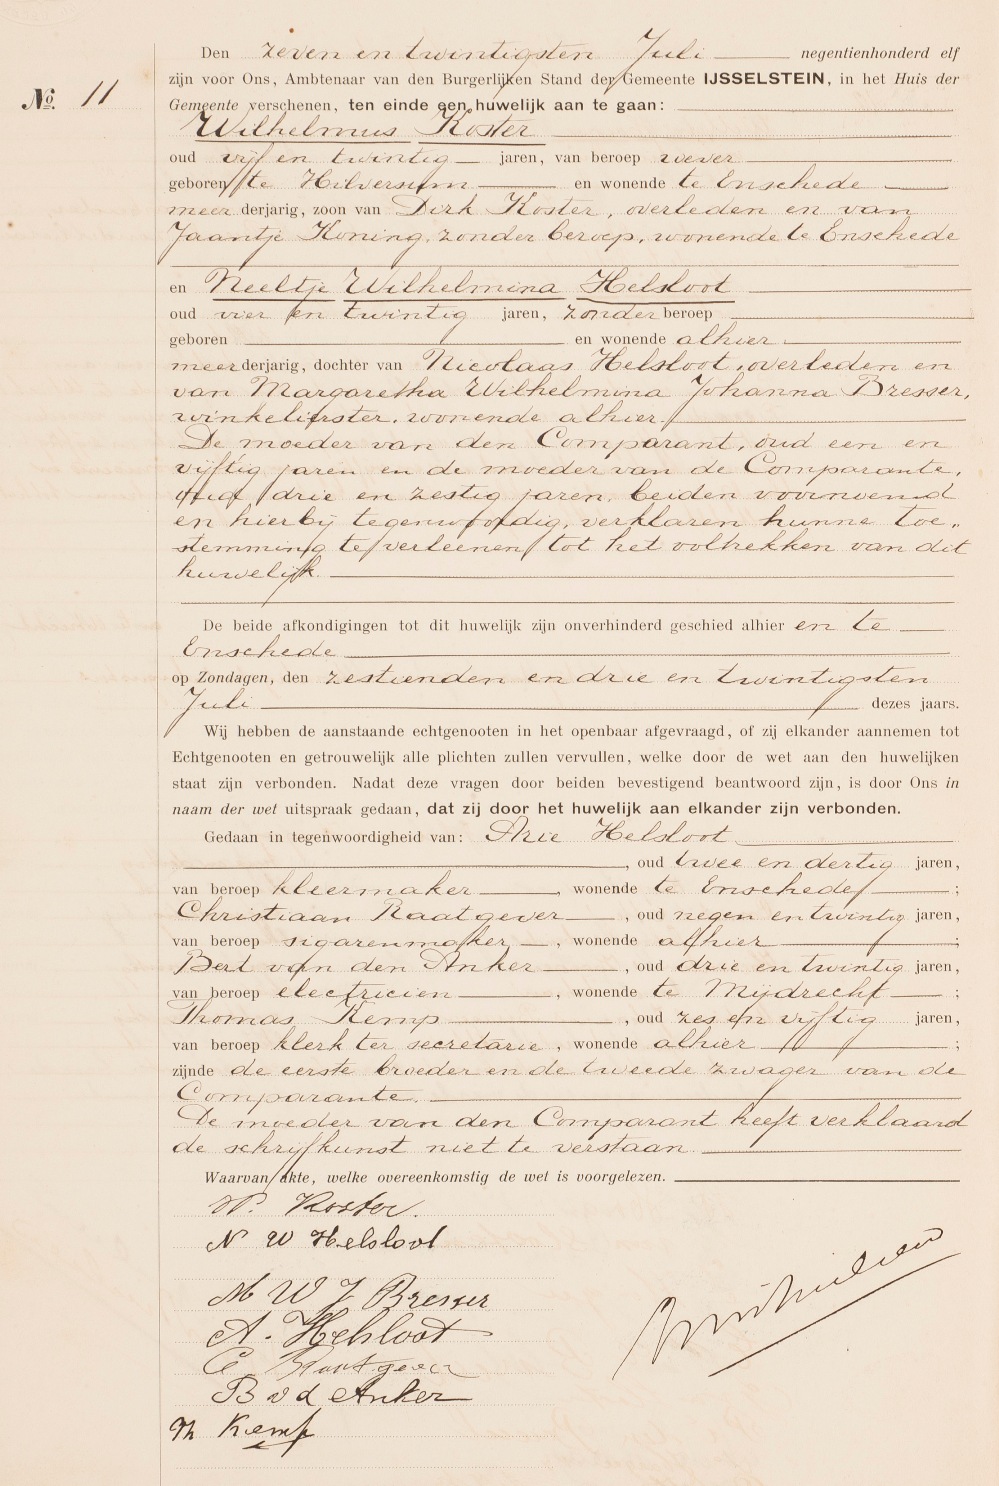 Den zeven en twintigsten Juli negentienhonderd elf
zijn voor Ons, Ambtenaar van den Burgerlijken Stand der Gemeente IJSSELSTEIN, in het Huis der
No. 11
Gemeente verschenen, ten einde een huwelijk aan te gaan:
Wilhelmus Koster
oud vijf en twintig jaren, van beroep wever
geboren te Hilversum en wonende te Enschede
meerderjarig, zoon van Dirk Koster, overleden en van
Jaantje Koning, zonder beroep, wonende te Enschede
en Neeltje Wilhelmina Helsloot
oud vier en twintig jaren, zonder beroep
geboren en wonende alhier
meerderjarig, dochter van Nicolaas Helsloot, overleden en
van Margaretha Wilhelmina Johanna Bresser,
winkelierster, wonende alhier.
De moeder van den Comparant, oud een en
vijftig jaren en de moeder van de Comparante,
oud drie en zestig jaren, beiden voornoemd
en hierbij tegenwoordig, verklaren hunne toe„
stemming te verleenen tot het voltrekken van dit
huwelijk.
De beide afkondigingen tot dit huwelijk zijn onverhinderd geschied alhier en te
Enschede
op Zondagen, den zestienden en drie en twintigsten
Juli dezes jaars.
Wij hebben de aanstaande echtgenooten in het openbaar afgevraagd, of zij elkander aannemen tot
Echtgenooten en getrouwelijk alle plichten zullen vervullen, welke door de wet aan den huwelijken
staat zijn verbonden. Nadat deze vragen door beiden bevestigend beantwoord zijn, is door Ons in
naam der wet uitspraak gedaan, dat zij door het huwelijk aan elkander zijn verbonden.
Gedaan in tegenwoordigheid van: Arie Helsloot
, oud twee en dertig jaren,
van beroep kleermaker, wonende te Enschede ;
Christiaan Raatgever, oud negen en twintig jaren,
van beroep sigarenmaker, wonende alhier ;
Bert van den Anker, oud drie en twintig jaren,
van beroep electricien, wonende te Mijdrecht ;
Thomas Kemp, oud zes en vijftig jaren,
van beroep klerk ter secretarie, wonende alhier ;
zijnde de eerste broeder en de tweede zwager van de
Comparante.
De moeder van den Comparant heeft verklaard
de schrijfkunst niet te verstaan.
Waarvan akte, welke overeenkomstig de wet is voorgelezen.
W. Koster.
N W Helsloot
M W J Bresser
A. Helsloot
C Raatgever
B v d Anker
Th Kemp